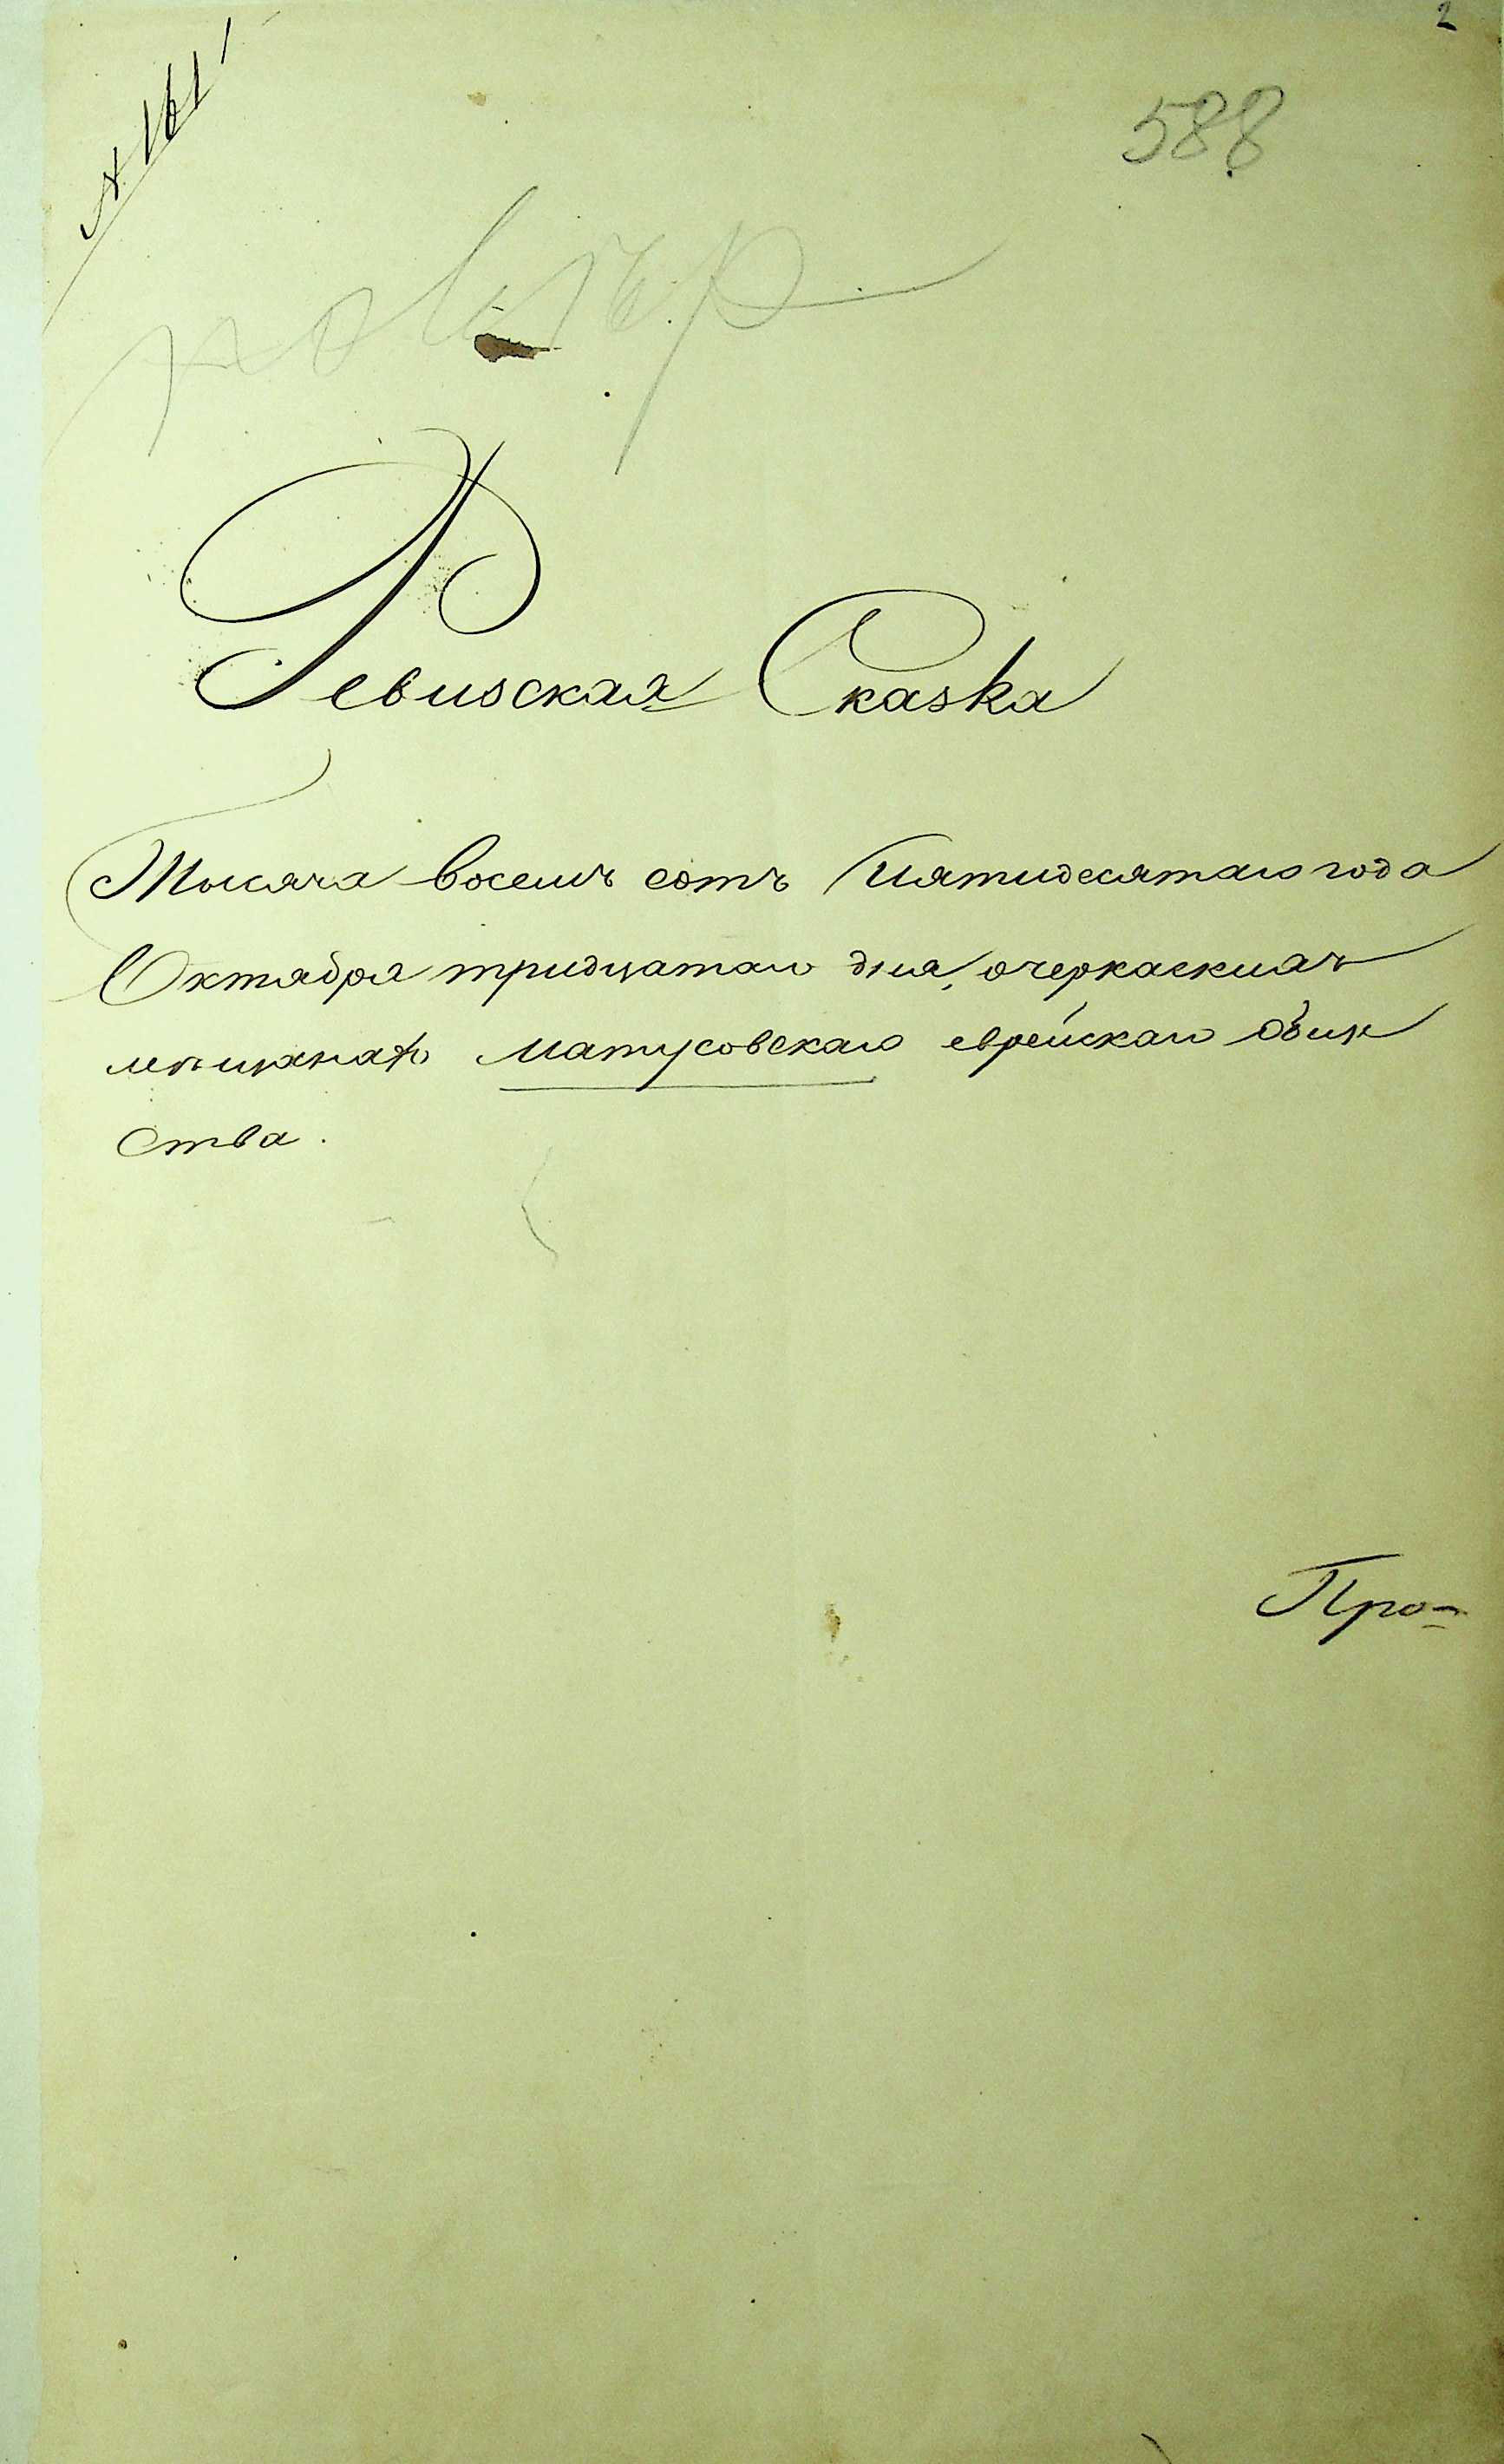 2
№ 161
588
Ревиская Сказка
Тысяча восемь сотъ Пятидесятаго года
Октября тридцатаго дня, очеркаскихъ
мещанахъ Матусовскаго еврейскаго общес
Ства.
Про-